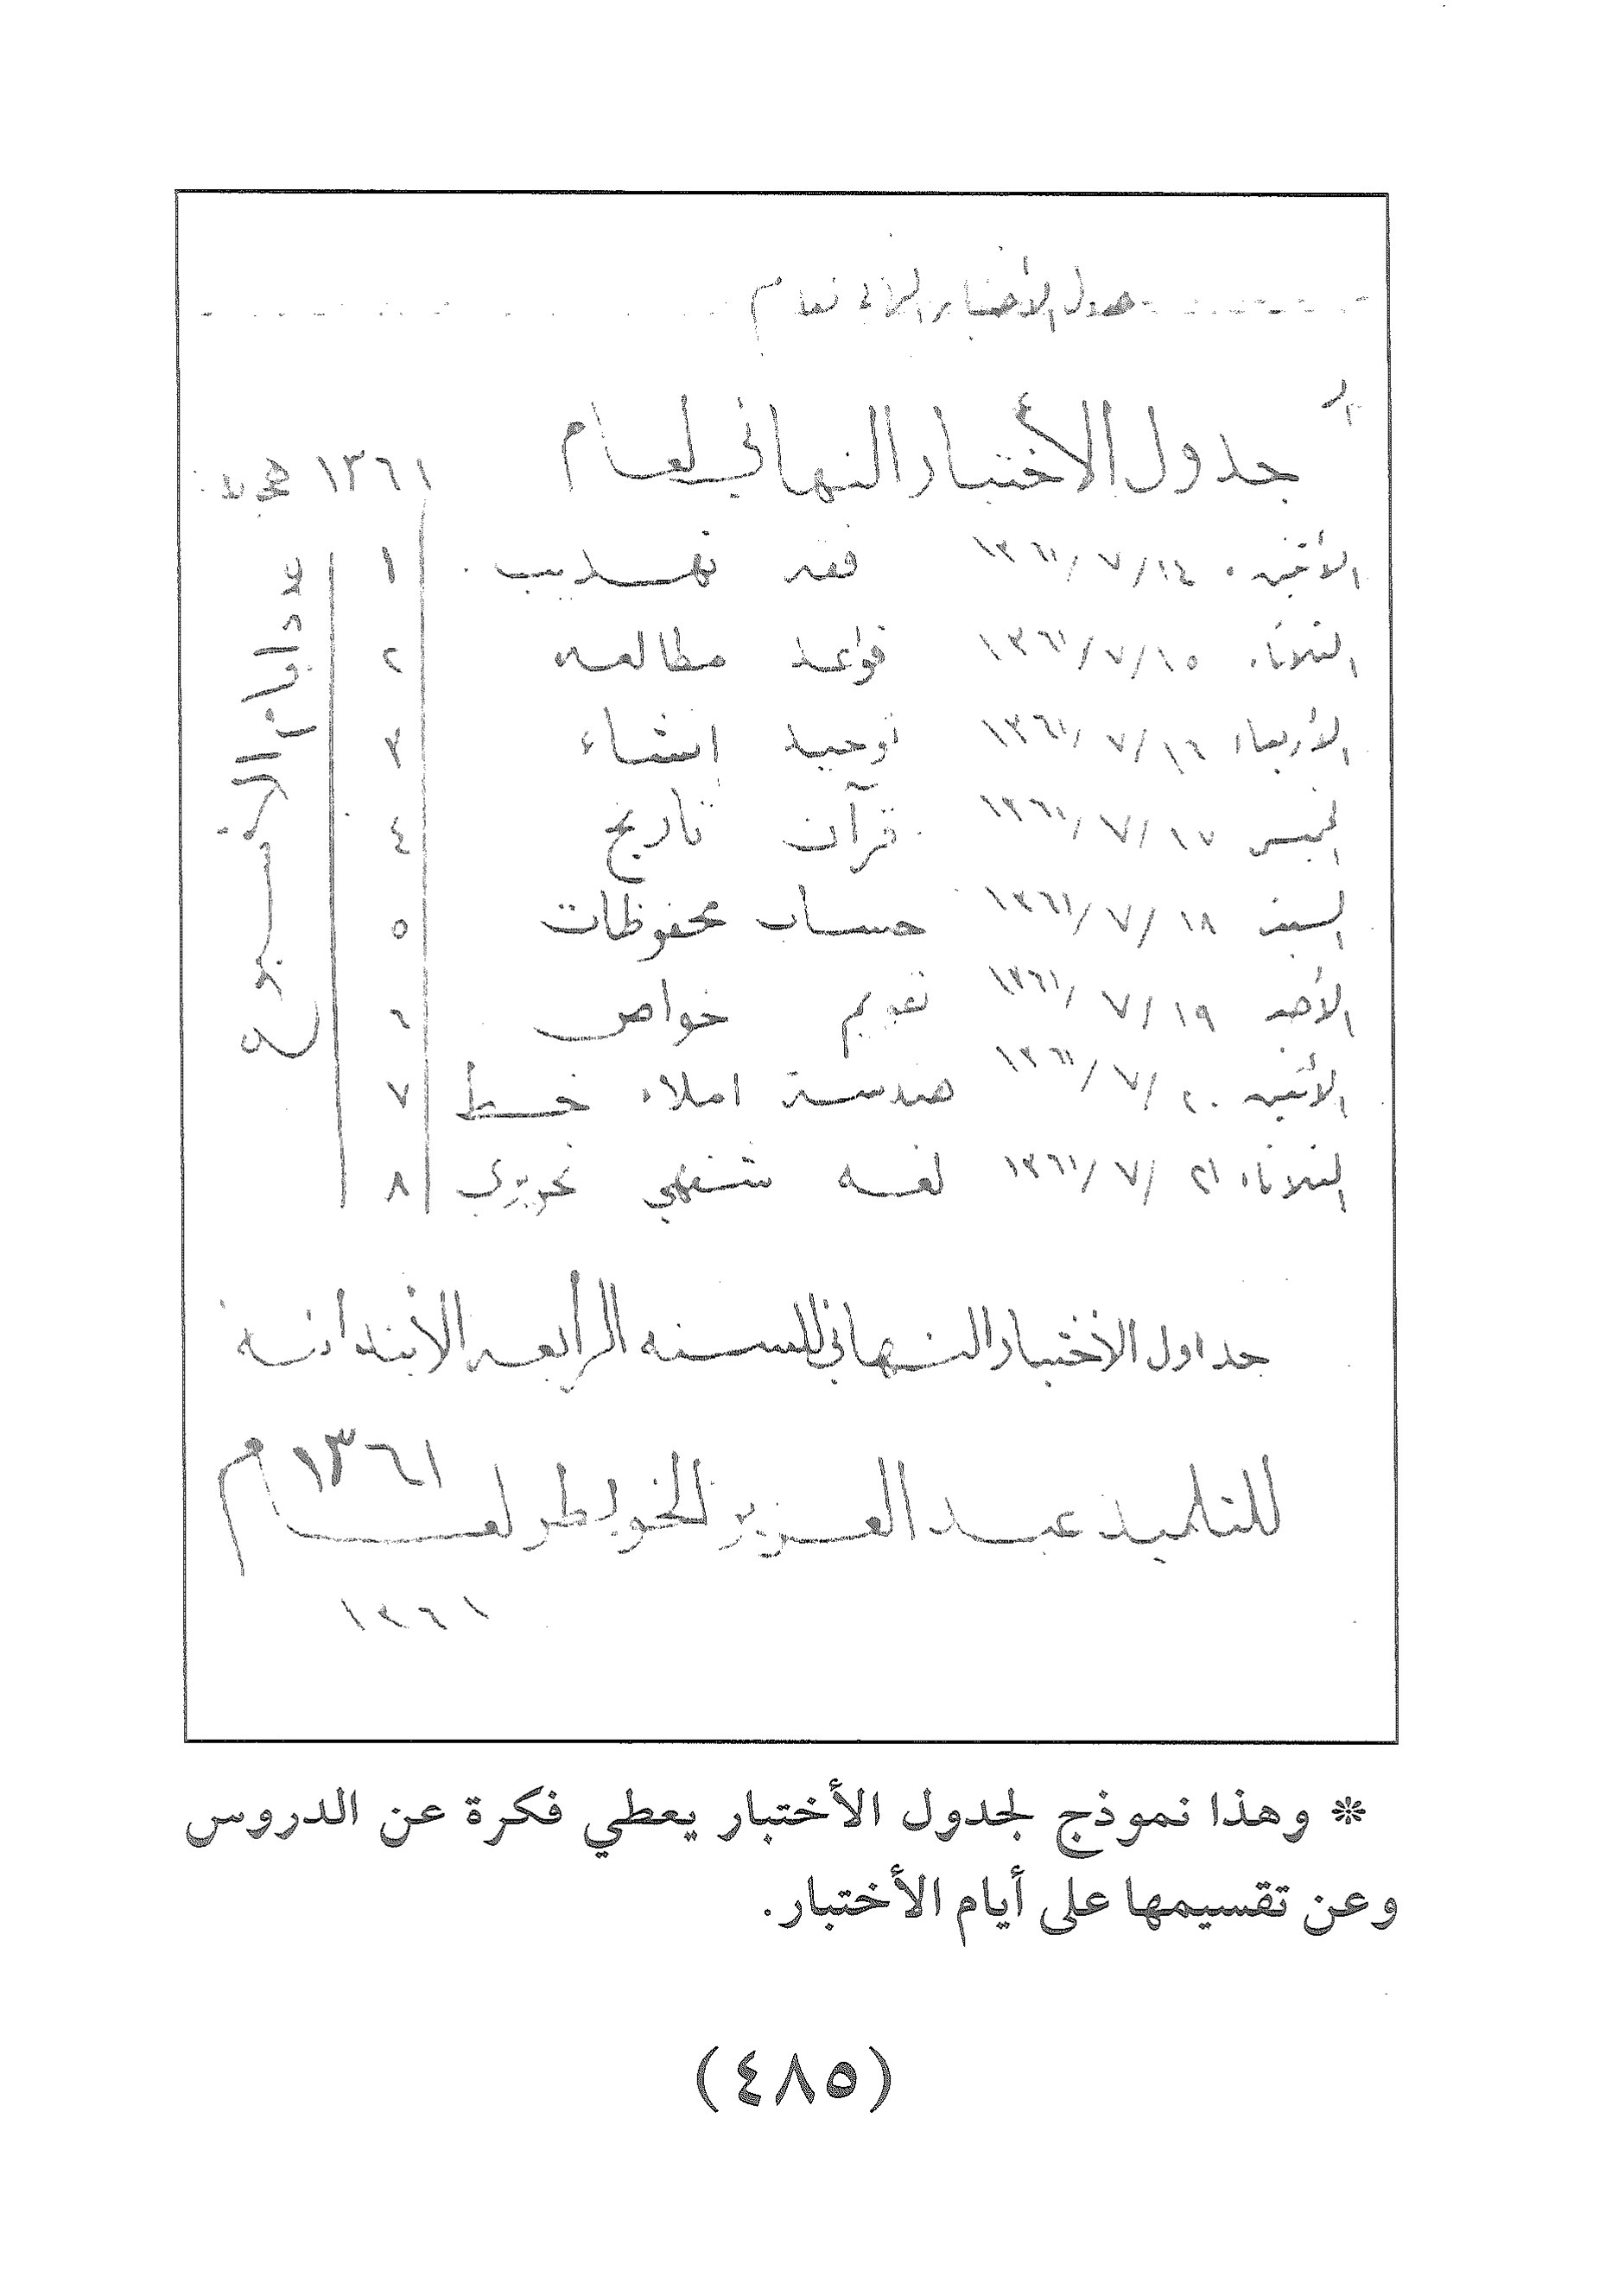 جدول الأختبار النهائي لعام
جدول الأختبار النهائي لعام ١٣٦١
الأثنين ١٤/٧/١٣٦١ فقه تهذيب ١
الثلاثاء ١٥/٧/١٣٦١ قواعد مطالعه ٢
الأربعاء ١٦/٧/١٣٦١ توحيد إنشاء ٣
الخميس ١٧/٧/١٣٦١ قرآن تاريخ ٤
السبت ١٨/٧/١٣٦١ حساب محفوظات ٥
الأحد ١٩/٧/١٣٦١ تقويم خواص ٦
الأثنين ٢٠/٧/١٣٦١ هندسة املاء خط ٧
الثلاثاء ٢١/٧/١٣٦١ لغه شفهي تحريري ٨
جداول الأختبار النهائي للسنه الرابعه الأبتدائيه
للتلميذ عبد العزيز الخويطر لعام ١٣٦١
١٣٦١
❊ وهذا نموذج لجدول الأختبار يعطي فكرة عن الدروس
وعن تقسيمها على أيام الأختبار.
(٤٨٥)